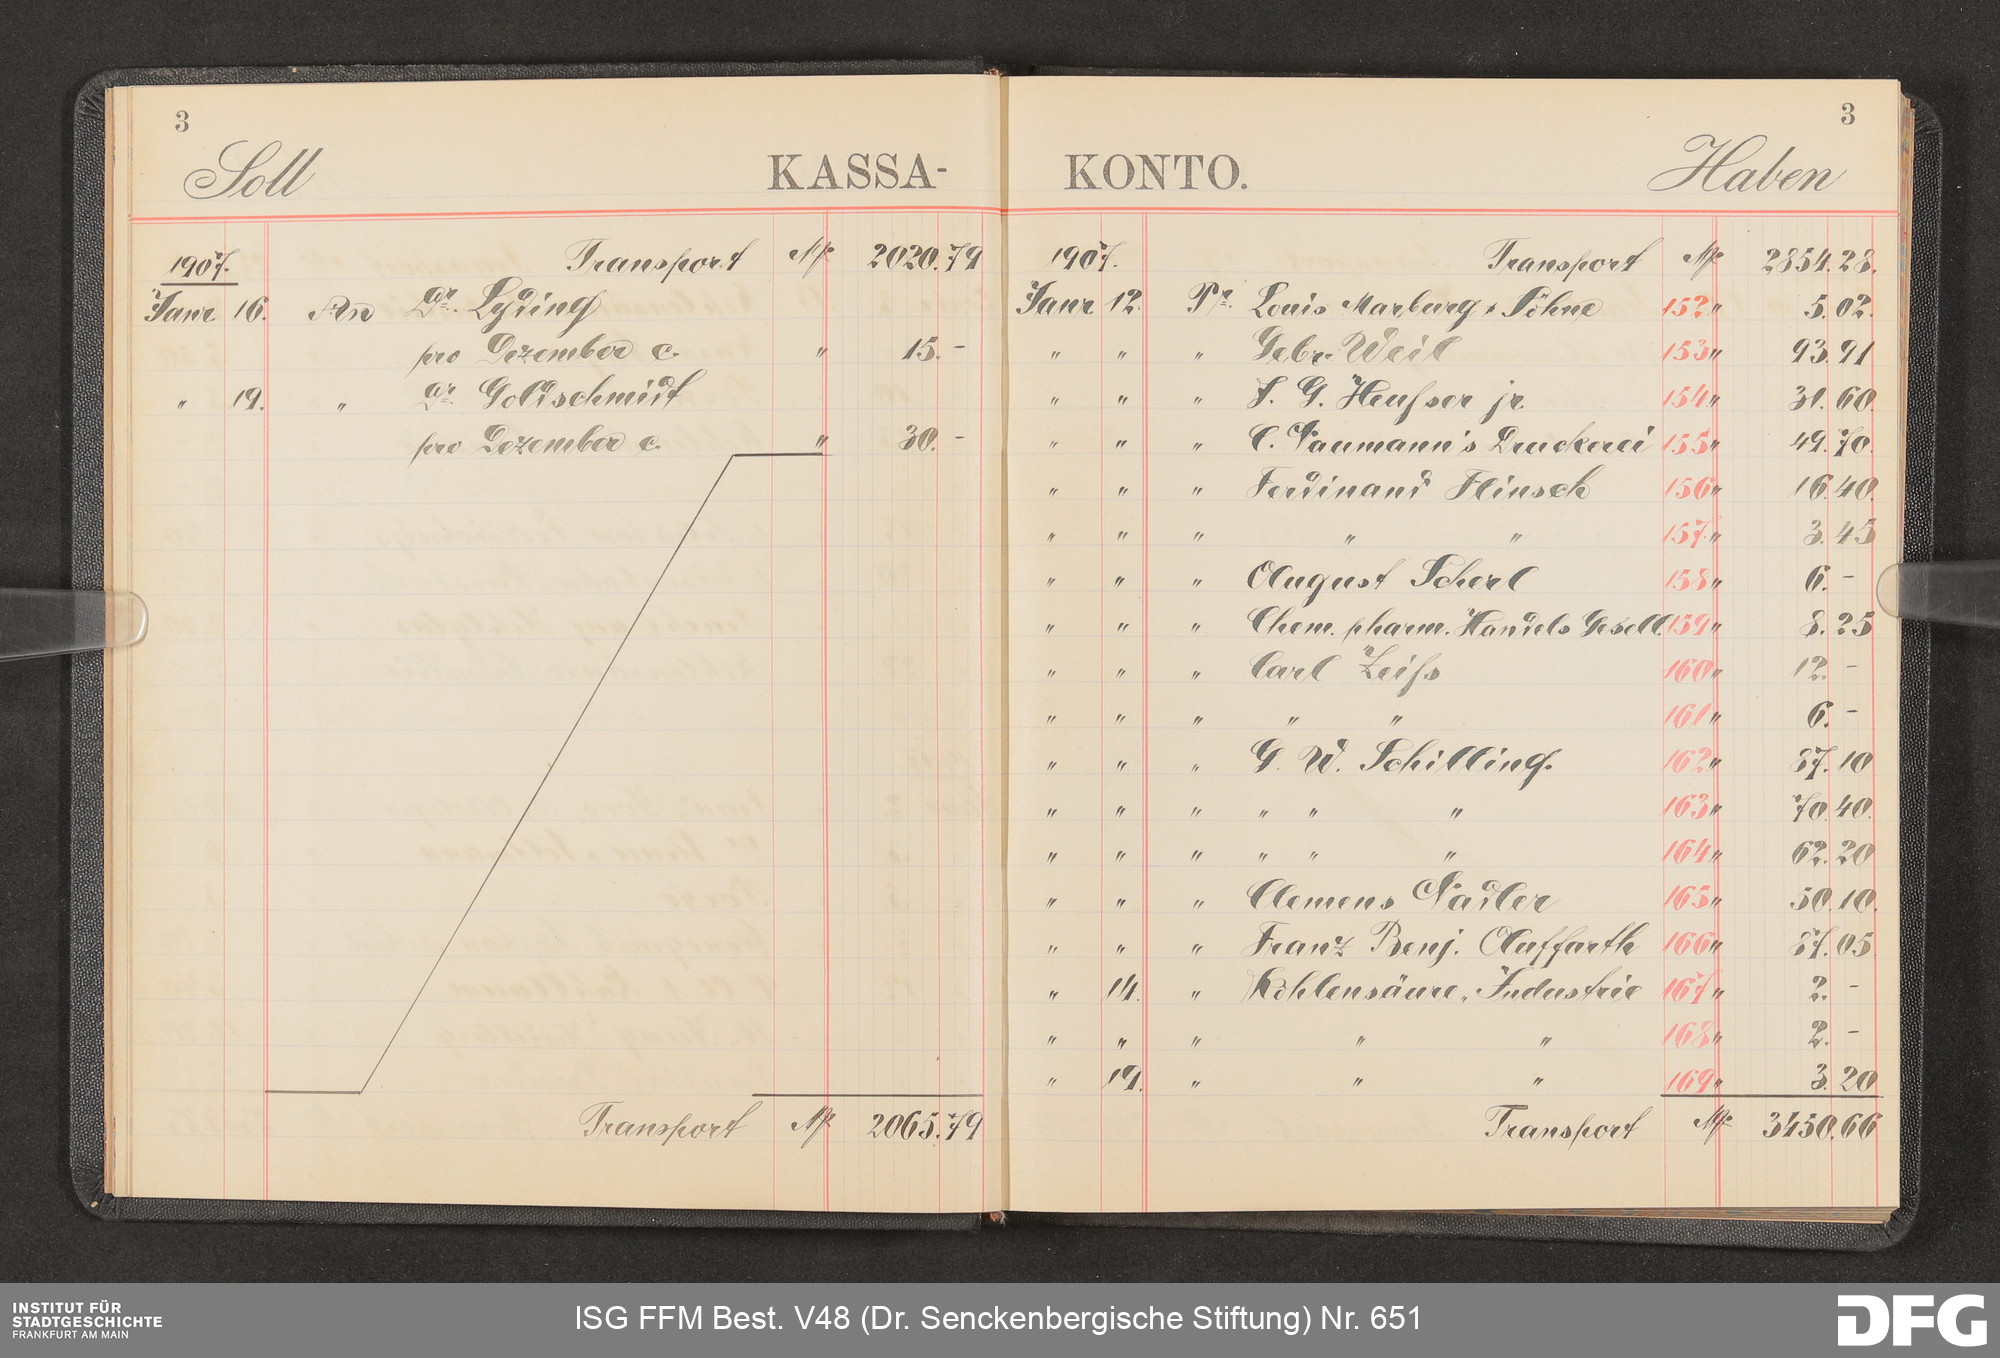 3
Soll KASSA-
1907. Transport M 2020.79
Janr 16. An Dr. Lyding
pro Dezember c. " 15.-
" 19. " Dr. Goldschmidt
pro Dezember c. " 30.-
Transport M 2065.79
3
KONTO. Haben
1907. Transport M 2854.28.
Janr 12. Pr. Louis Marburg & Söhne 152 " 5.02.
" " " Gebr. Weil 153 " 93.91
" " " J. G. Heusser jr. 154 " 31.60.
" " " C. Naumann's Druckerei 155 " 49.70.
" " " Ferdinand Flinsch 156 " 16.40.
" " " " " 157 " 3.45
" " " August Scherl 158 " 6.-
" " " Chem. pharm. Handels Gesell. 159 " 8.25
" " " Carl Zeiss 160 " 12.-
" " " " " 161 " 6.-
" " " G. W. Schilling. 162 " 87.10
" " " " " " 163 " 70.40.
" " " " " " 164 " 62.20
" " " Clemens Nadler 165 " 50.10.
" " " Franz Benj. Auffarth 166 " 87.05
" 14. " Kohlensäure-Industrie 167 " 2.-
" " " " " 168 " 2.-
" 19. " " " 169 " 3.20
Transport M 3450.66
INSTITUT FÜR
STADTGESCHICHTE
FRANKFURT AM MAIN
ISG FFM Best. V48 (Dr. Senckenbergische Stiftung) Nr. 651
DFG